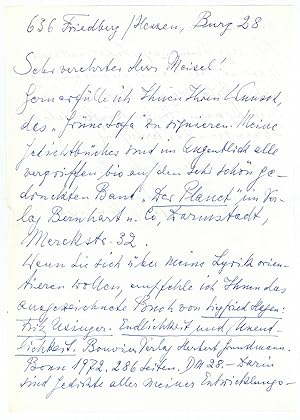 636 Friedberg/Hessen, Burg 28
Sehr verehrter Herr Meisel!
Gern erfülle ich Ihnen Ihren Wunsch,
das „Grüne Sofa" zu signieren. Meine
Gedichtbücher sind im Augenblick alle
vergriffen, bis auf den sehr schön ge-
druckten Band „Der Planet", im Ver-
lag Bernhart u. Co, Darmstadt,
Merckstr. 32.
Wenn Sie sich über meine Lyrik orien-
tieren wollen, empfehle ich Ihnen das
ausgezeichnete Buch von Siegfried Hagen:
Fritz Usinger. Endlichkeit und Unend-
lichkeit. Bouvier Verlag Herbert Grundmann.
Bonn 1972. 286 Seiten. DM 28.— Darin
sind Gedichte aller meiner Entwicklungs-